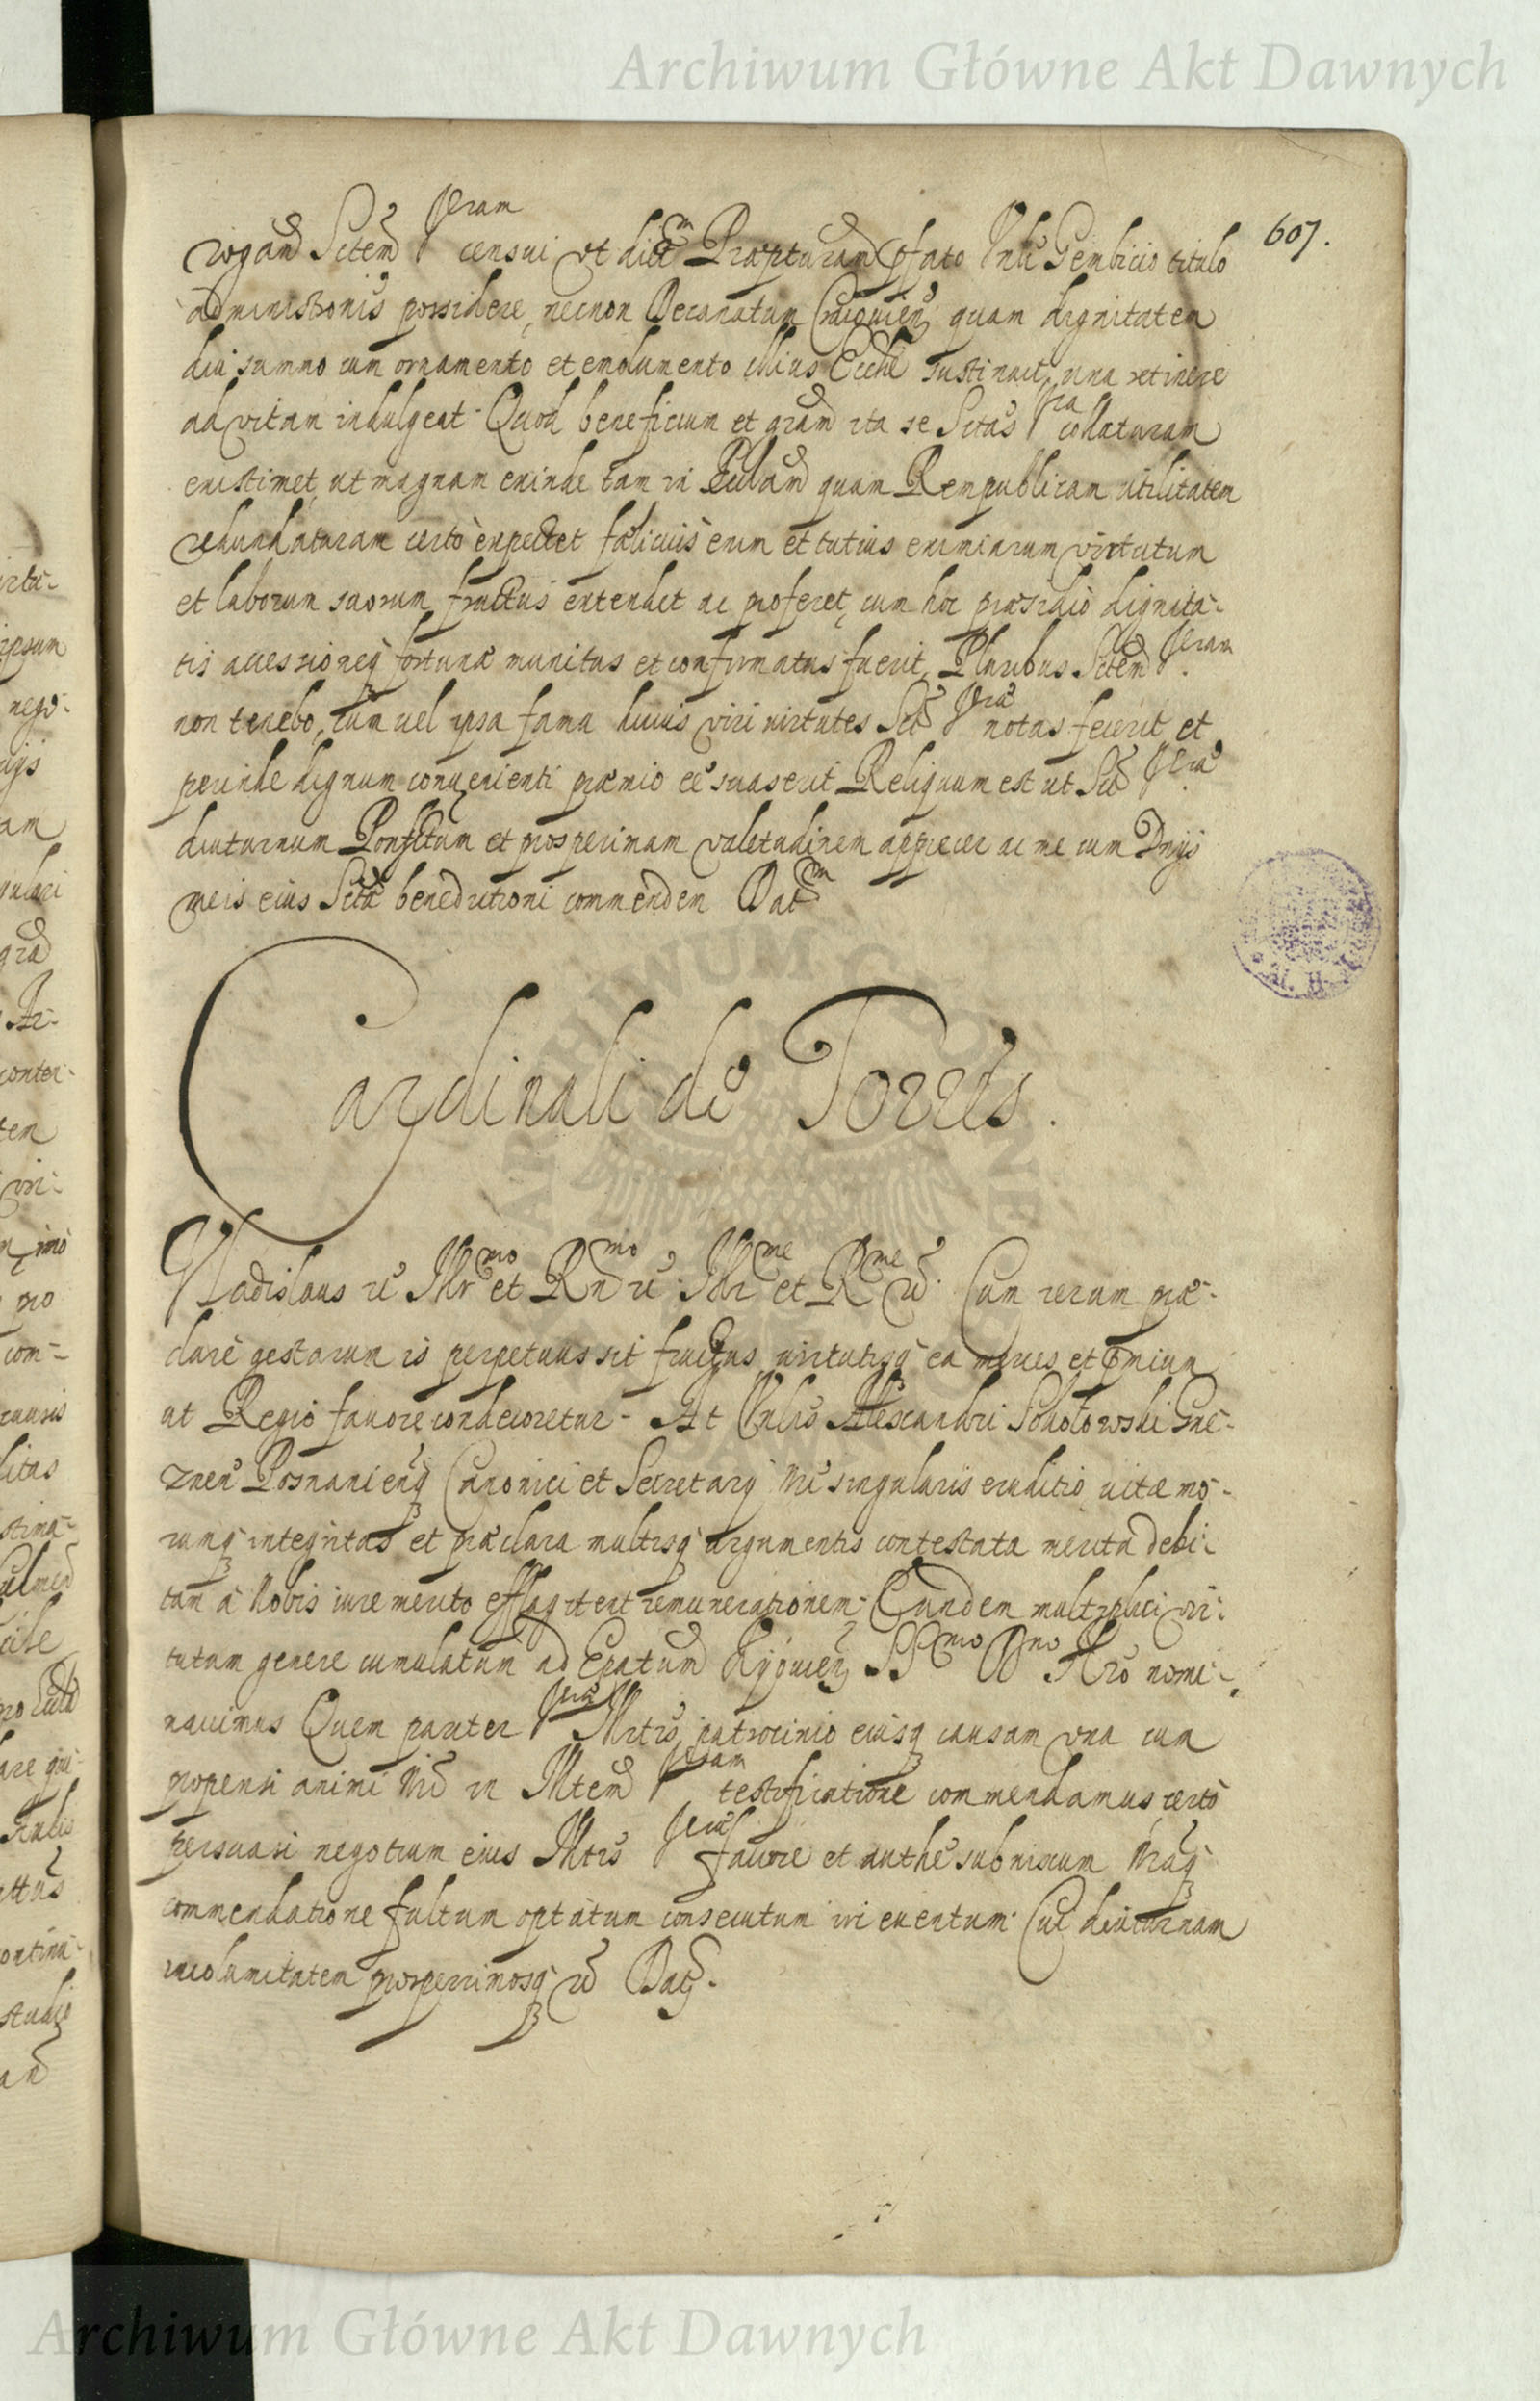 Archiwum Główne Akt Dawnych
607.
rogand Sctem Vram censui vt dictm Præpturam pfato Gembicio titulo
administronis possidere, necnon Decanatum Cracouien quam dignitatem
diu summo cum ornamento et emolumento illius Eccliæ sustinuit, una retinere
ad vitam indulgeat. Quod beneficium et gram ita se Sctas Vra collaturam
existimet, ut magnam exinde tam in quam Rempublicam utilitatem
redundaturam certò expectet fæliciùs enim et tutius eximiarum virtutum
et laborum suorum fructus extendet ac proferet, cum hoc præsidio dignita-
tis accessioneq fortunæ munitus et confirmatus fuerit, Pluribus Sctem Vram
non tenebo, cum uel ipsa fama huius viri virtutes Scti Vræ notas fecerit et
perinde dignum conuenienti præmio eē suaserit Reliquum est ut Scti Vræ
diuturnum Pontftum et prosperimam valetudinem apprecer ac me cum Dnijs
meis eius Sctæ benedictioni commendem Datm
Cardinali de Torres.
Vladislaus rc Illrmo et Rndmo rc Illrme et Rme rc. Cum rerum præ-
clarè gestarum is perpetuus sit fructus uirtutisq ea merces et
ut Regio fauore condecoretur. At Alexandri Sokołowski Gne-
znen Posnanienq Canonici et Secretarij Nri singularis eruditio uitæ mo-
rumq integritas et præclara multisq argumentis contestata merita debi-
tam à Nobis iure merito efflagitent remunerationem. Eundem multiplici vir-
tutum genere cumulatum ad Epatum Kyouien SSmo Dno Nro nomi-
nauimus Quem pariter Vræ Illrtis patrocinio eiusq causam vna cum
propensi animi Nri in Illtem Vram testificatione commendamus certò
persuasi negotium eius Illtris Vræ fauore et authe subnixum Nraq
commendatione fultum optatum consecutum iri euentum. Cui diuturnam
incolumitatem prosperrimosq rc Datq.
Archiwum Główne Akt Dawnych